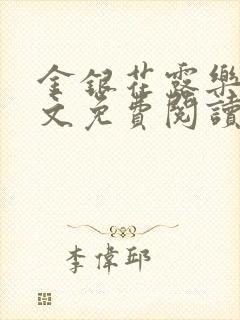 金銀花露樂
文免費閱讀
李偉邱